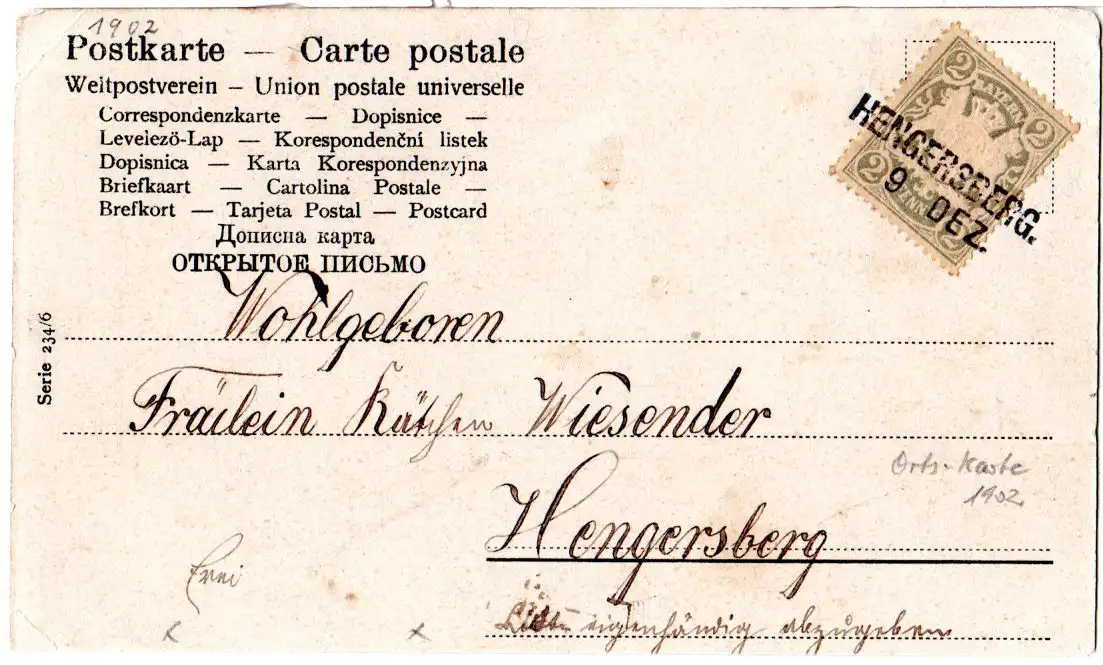 1902
Postkarte — Carte postale
Weltpostverein – Union postale universelle
Correspondenzkarte — Dopisnice —
Levelező-Lap — Korespondenční listek
Dopisnica — Karta Korespondenzyjna
Briefkaart — Cartolina Postale —
Brefkort — Tarjeta Postal — Postcard
Дописна карта
ОТКРЫТОЕ ПИСЬМО
2 BAYERN 2
HENGERSBERG.
9 DEZ.
2 2
Serie 234/6
Wohlgeboren
Fräulein Kätchen Wiesender
Orts-Karte
1902
Hengersberg
frei
eigenhändig abzugeben
x x